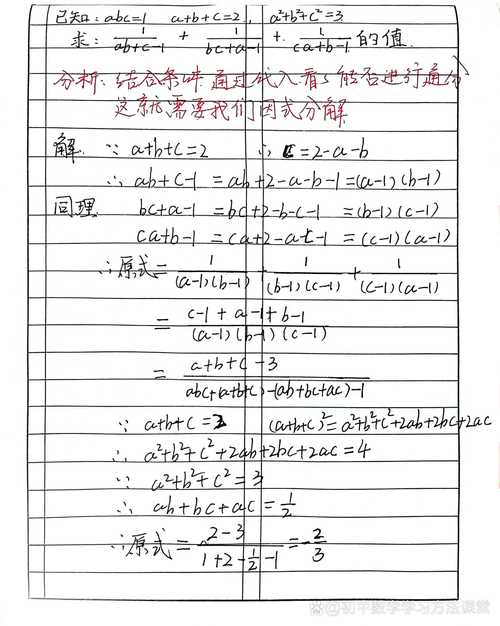 已知: abc=1 a+b+c=2, a²+b²+c²=3
求: 1/(ab+c-1) + 1/(bc+a-1) + 1/(ca+b-1) 的值.
分析: 结合条件 通过代入看s能否进行通分
这就需要我们因式分解
解. ∵ a+b+c=2 ∴ c=2-a-b
∴ ab+c-1 =ab+2-a-b-1=(a-1)(b-1)
同理. bc+a-1 =bc+2-b-c-1 =(b-1)(c-1)
ca+b-1 =ca+2-a-c-1 =(c-1)(a-1)
∴原式= 1/((a-1)(b-1)) + 1/((b-1)(c-1)) + 1/((c-1)(a-1))
= (c-1+a-1+b-1)/((a-1)(b-1)(c-1))
= (a+b+c-3)/(abc+(a+b+c)-(ab+bc+ac)-1)
∵ a+b+c=2 (a+b+c)²=a²+b²+c²+2ab+2bc+2ac
∴ a²+b²+c²+2ab+2bc+2ac=4
∵ a²+b²+c²=3
∴ ab+bc+ac=1/2
∴原式= (2-3)/(1+2-1/2-1) =-2/3
@初中数学学习方法课堂